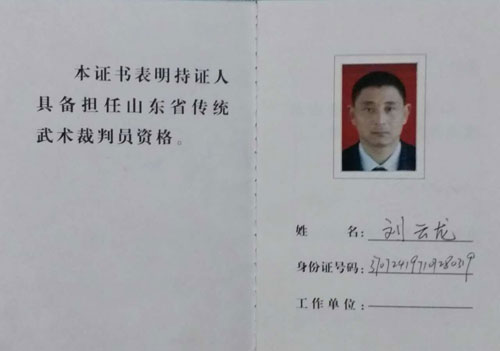 本证书表明持证人
具备担任山东省传统
武术裁判员资格。
姓 名: 刘云龙
身份证号码:
工作单位: